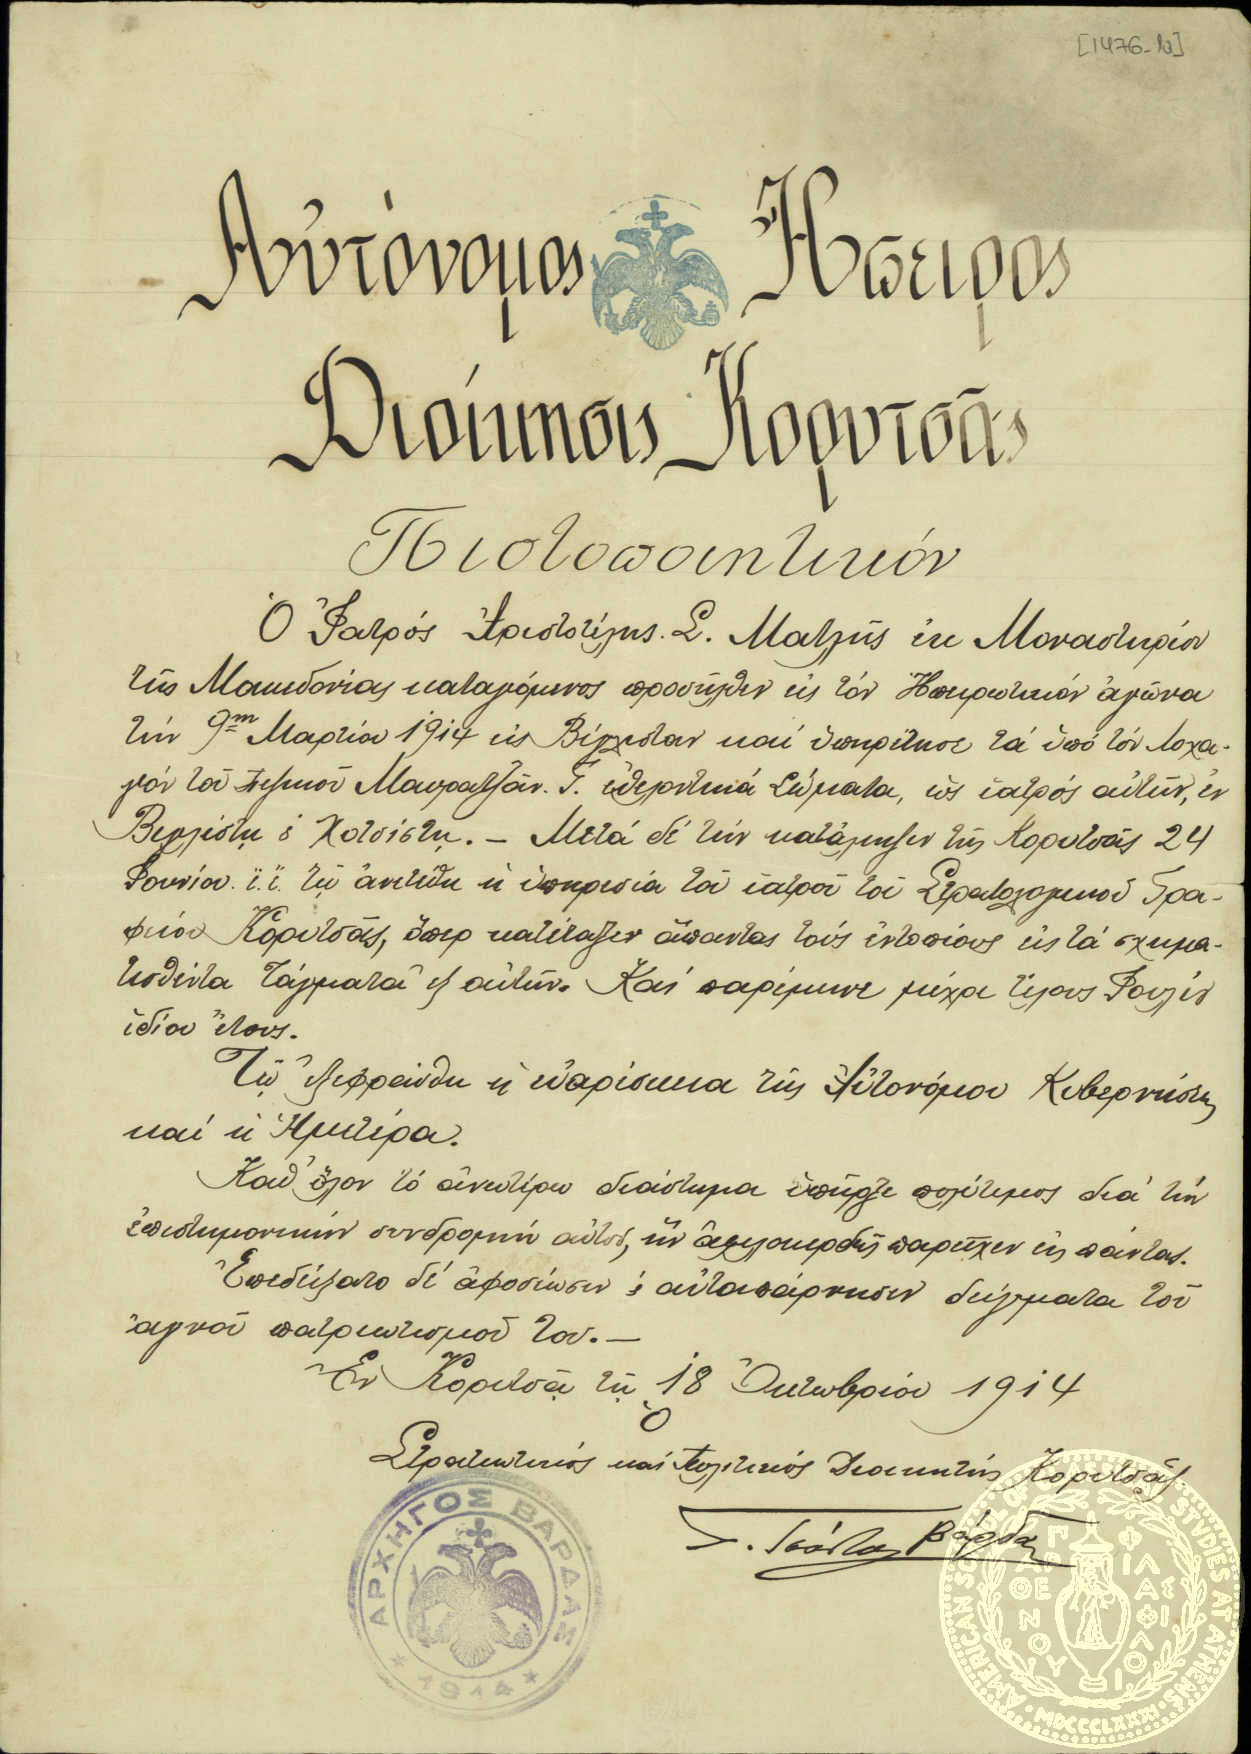 [1476-10]
Αὐτόνομος Ἤπειρος
Διοίκησις Κορυτσᾶς
Πιστοποιητικόν
Ὁ Ἰατρός Ἀριστοτέλης. Σ. Ματλῆς ἐκ Μοναστηρίου
τῆς Μακεδονίας καταγόμενος προσῆλθεν εἰς τόν Ἠπειρωτικόν ἀγῶνα
τήν 9ην Μαρτίου 1914 εἰς Βίγλισταν καί ὑπηρέτησε τά ὑπό τόν λοχα-
γόν τοῦ πεζικοῦ Γ. ἐθελοντικά Σώματα, ὡς ἰατρός αὐτῶν, ἐν
Βιγλίστῃ & Χοτσίστῃ. — Μετά δέ τήν κατάληψιν τῆς Κορυτσᾶς 24
Ἰουνίου. ἰ. ἔ. τῷ ἀνετέθη ἡ ὑπηρεσία τοῦ ἰατροῦ τοῦ Στρατολογικοῦ Γρα-
φείου Κορυτσᾶς, ὅπερ κατέταξεν ἅπαντας τούς ἐντοπίους εἰς τά σχημα-
τισθέντα Τάγματα ἐξ αὐτῶν. Καί παρέμεινε μέχρι τέλους Ἰουλίου
ἰδίου ἔτους.
Τῷ ἐξεφράσθη ἡ εὐαρέσκεια τῆς Αὐτονόμου Κυβερνήσεως
καί ἡ Ἡμετέρα.
Καθ' ὅλον τό ἀνωτέρω διάστημα ὑπῆρξε πολύτιμος διά τήν
ἐπιστημονικήν συνδρομήν αὐτοῦ, ἥν ἀφιλοκερδῶς παρεῖχεν εἰς πάντας.
Ἐπεδείξατο δέ ἀφοσίωσιν & αὐταπάρνησιν δείγματα τοῦ
ἁγνοῦ πατριωτισμοῦ του. —
Ἐν Κορυτσᾷ τῇ 18 Ὀκτωβρίου 1914
Ὁ
Στρατιωτικός καί Πολιτικός Διοικητής Κορυτσᾶς
Γ. Τσόντος Βάρδας
ΑΡΧΗΓΟΣ ΒΑΡΔΑΣ
* 1914 *
AMERICAN SCHOOL OF CLASSICAL STUDIES AT ATHENS
ΠΑΡΘΕΝΟΥ ΦΙΛΑΣ ΦΙΛΟΙ
MDCCCLXXXI